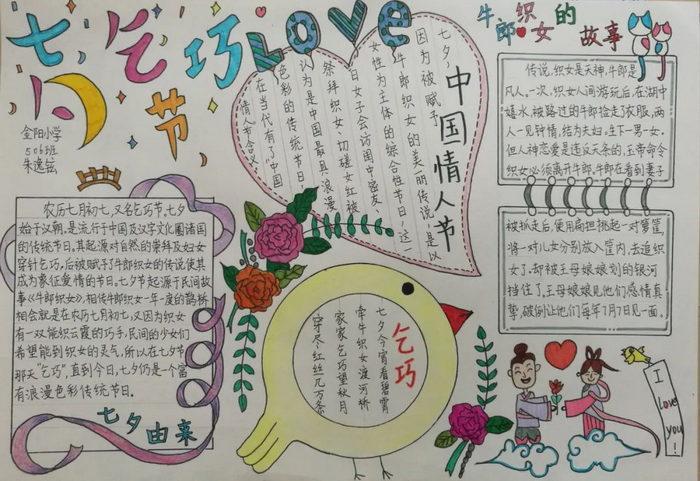 七夕乞巧节
LOVE
金阳小学
506班
朱逸
农历七月初七,又名乞巧节,七夕
始于汉朝,是流行于中国及汉字文化圈诸国
的传统节日,其起源对自然的崇拜及妇女
穿针乞巧,后被赋予了牛郎织女的传说使其
成为象征爱情的节日。七夕节起源于民间故
事《牛郎织女》,相传牛郎织女一年一度的鹊桥
相会就是在农历七月初七,又因为织女
有一双能织云霞的巧手,民间的少女们
希望能到织女的灵气,所以在七夕节
那天"乞巧",直到今日,七夕仍是一个富
有浪漫色彩传统节日。
七夕由来
中国情人节
七夕
因为被赋予
牛郎织女的美丽传说,是以
女性为主体的综合性节日,这一
日女子会访闺中密友
祭拜织女、切磋女红被
认为是中国最具浪漫
色彩的传统节日
在当代有了中国
情人节含义
乞巧
七夕今宵看碧霄
牵牛织女渡河桥
家家乞巧望秋月
穿尽红丝几万条
牛郎织女的故事
传说,织女是天神,牛郎是
凡人。一次,织女人间游玩后,在湖中
嬉水,被路过的牛郎捡走了衣服,两
人一见钟情,结为夫妇,生下一男一女。
但人神恋爱是违反天条的,玉帝命令
织女必须离开牛郎,牛郎在看到妻子
被抓走后,使用扁担挑起一对箩筐,
将一对儿女分别放入筐内,去追织
女了,却被王母娘娘划的银河
挡住了。王母娘娘见他们感情真
挚,破例让他们每年7月7日见一面。
I love you!